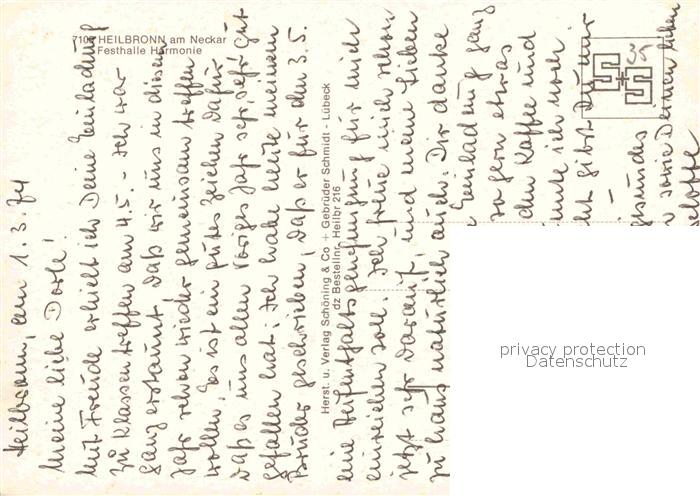 7100 HEILBRONN am Neckar
Festhalle Harmonie
Heilbronn, am 1.3.74
Meine liebe Dorle!
Mit Freude erhielt ich Deine Einladung
zu Klassentreffen am 4.5. - Ich war
ganz erstaunt, daß wir uns in diesem
Jahr schon wieder gemeinsam treffen
wollen. Es ist ein gutes Zeichen dafür
daß es uns allen voriges Jahr sehr, sehr gut
gefallen hat. Ich habe heute meinem
Bruder geschrieben, daß er für den 3.5.
Herst. u. Verlag Schöning & Co + Gebrüder Schmidt - Lübeck
dz Bestellnr. Heilbr 216
eine Aufenthaltsgenehmigung für mich
einreichen soll. Ich freue mich schon
jetzt sehr darauf, und meine Lieben
zu Haus natürlich auch. Dir danke
Einladung ganz
so gern etwas
den Kaffee und
ich
gibst Du mir
gesundes
sowie Deinen lieben
35
privacy protection
Datenschutz